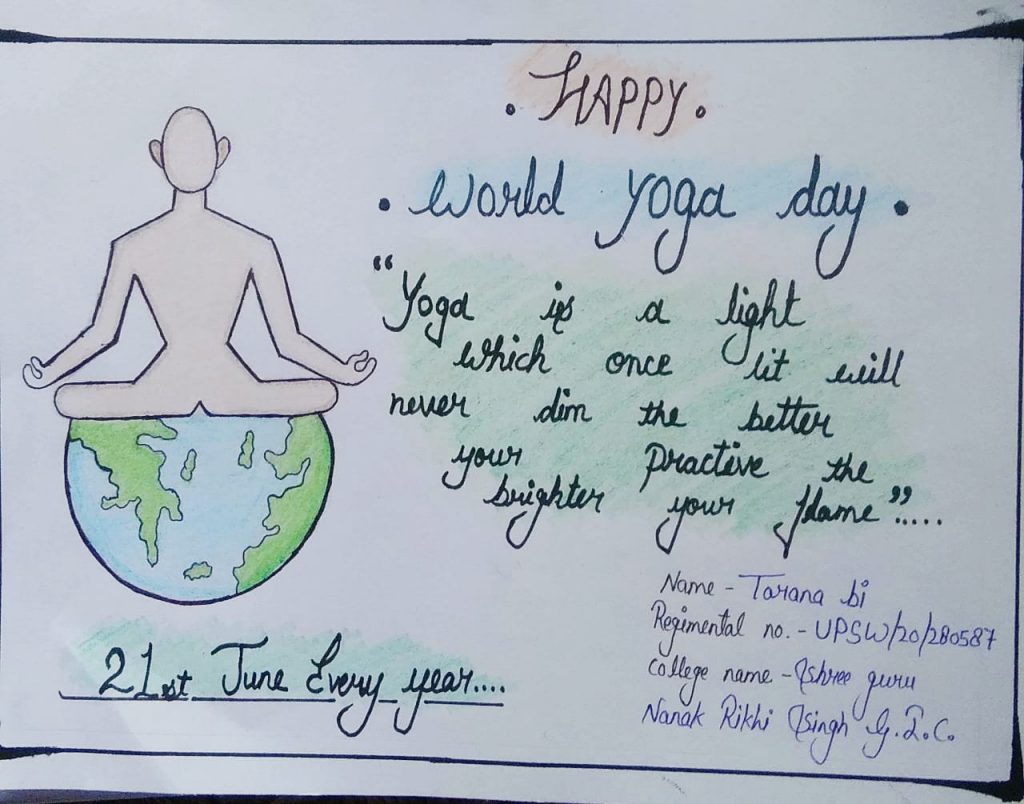 . HAPPY .
. World Yoga day .
"Yoga is a light
which once lit will
never dim the better
your practive the
brighter your flame".....
Name - Tarana bi
Regimental no. - UPSW/20/280587
college name - Shree guru
Nanak Rikhi Singh G.I.C.
21st June Every year....